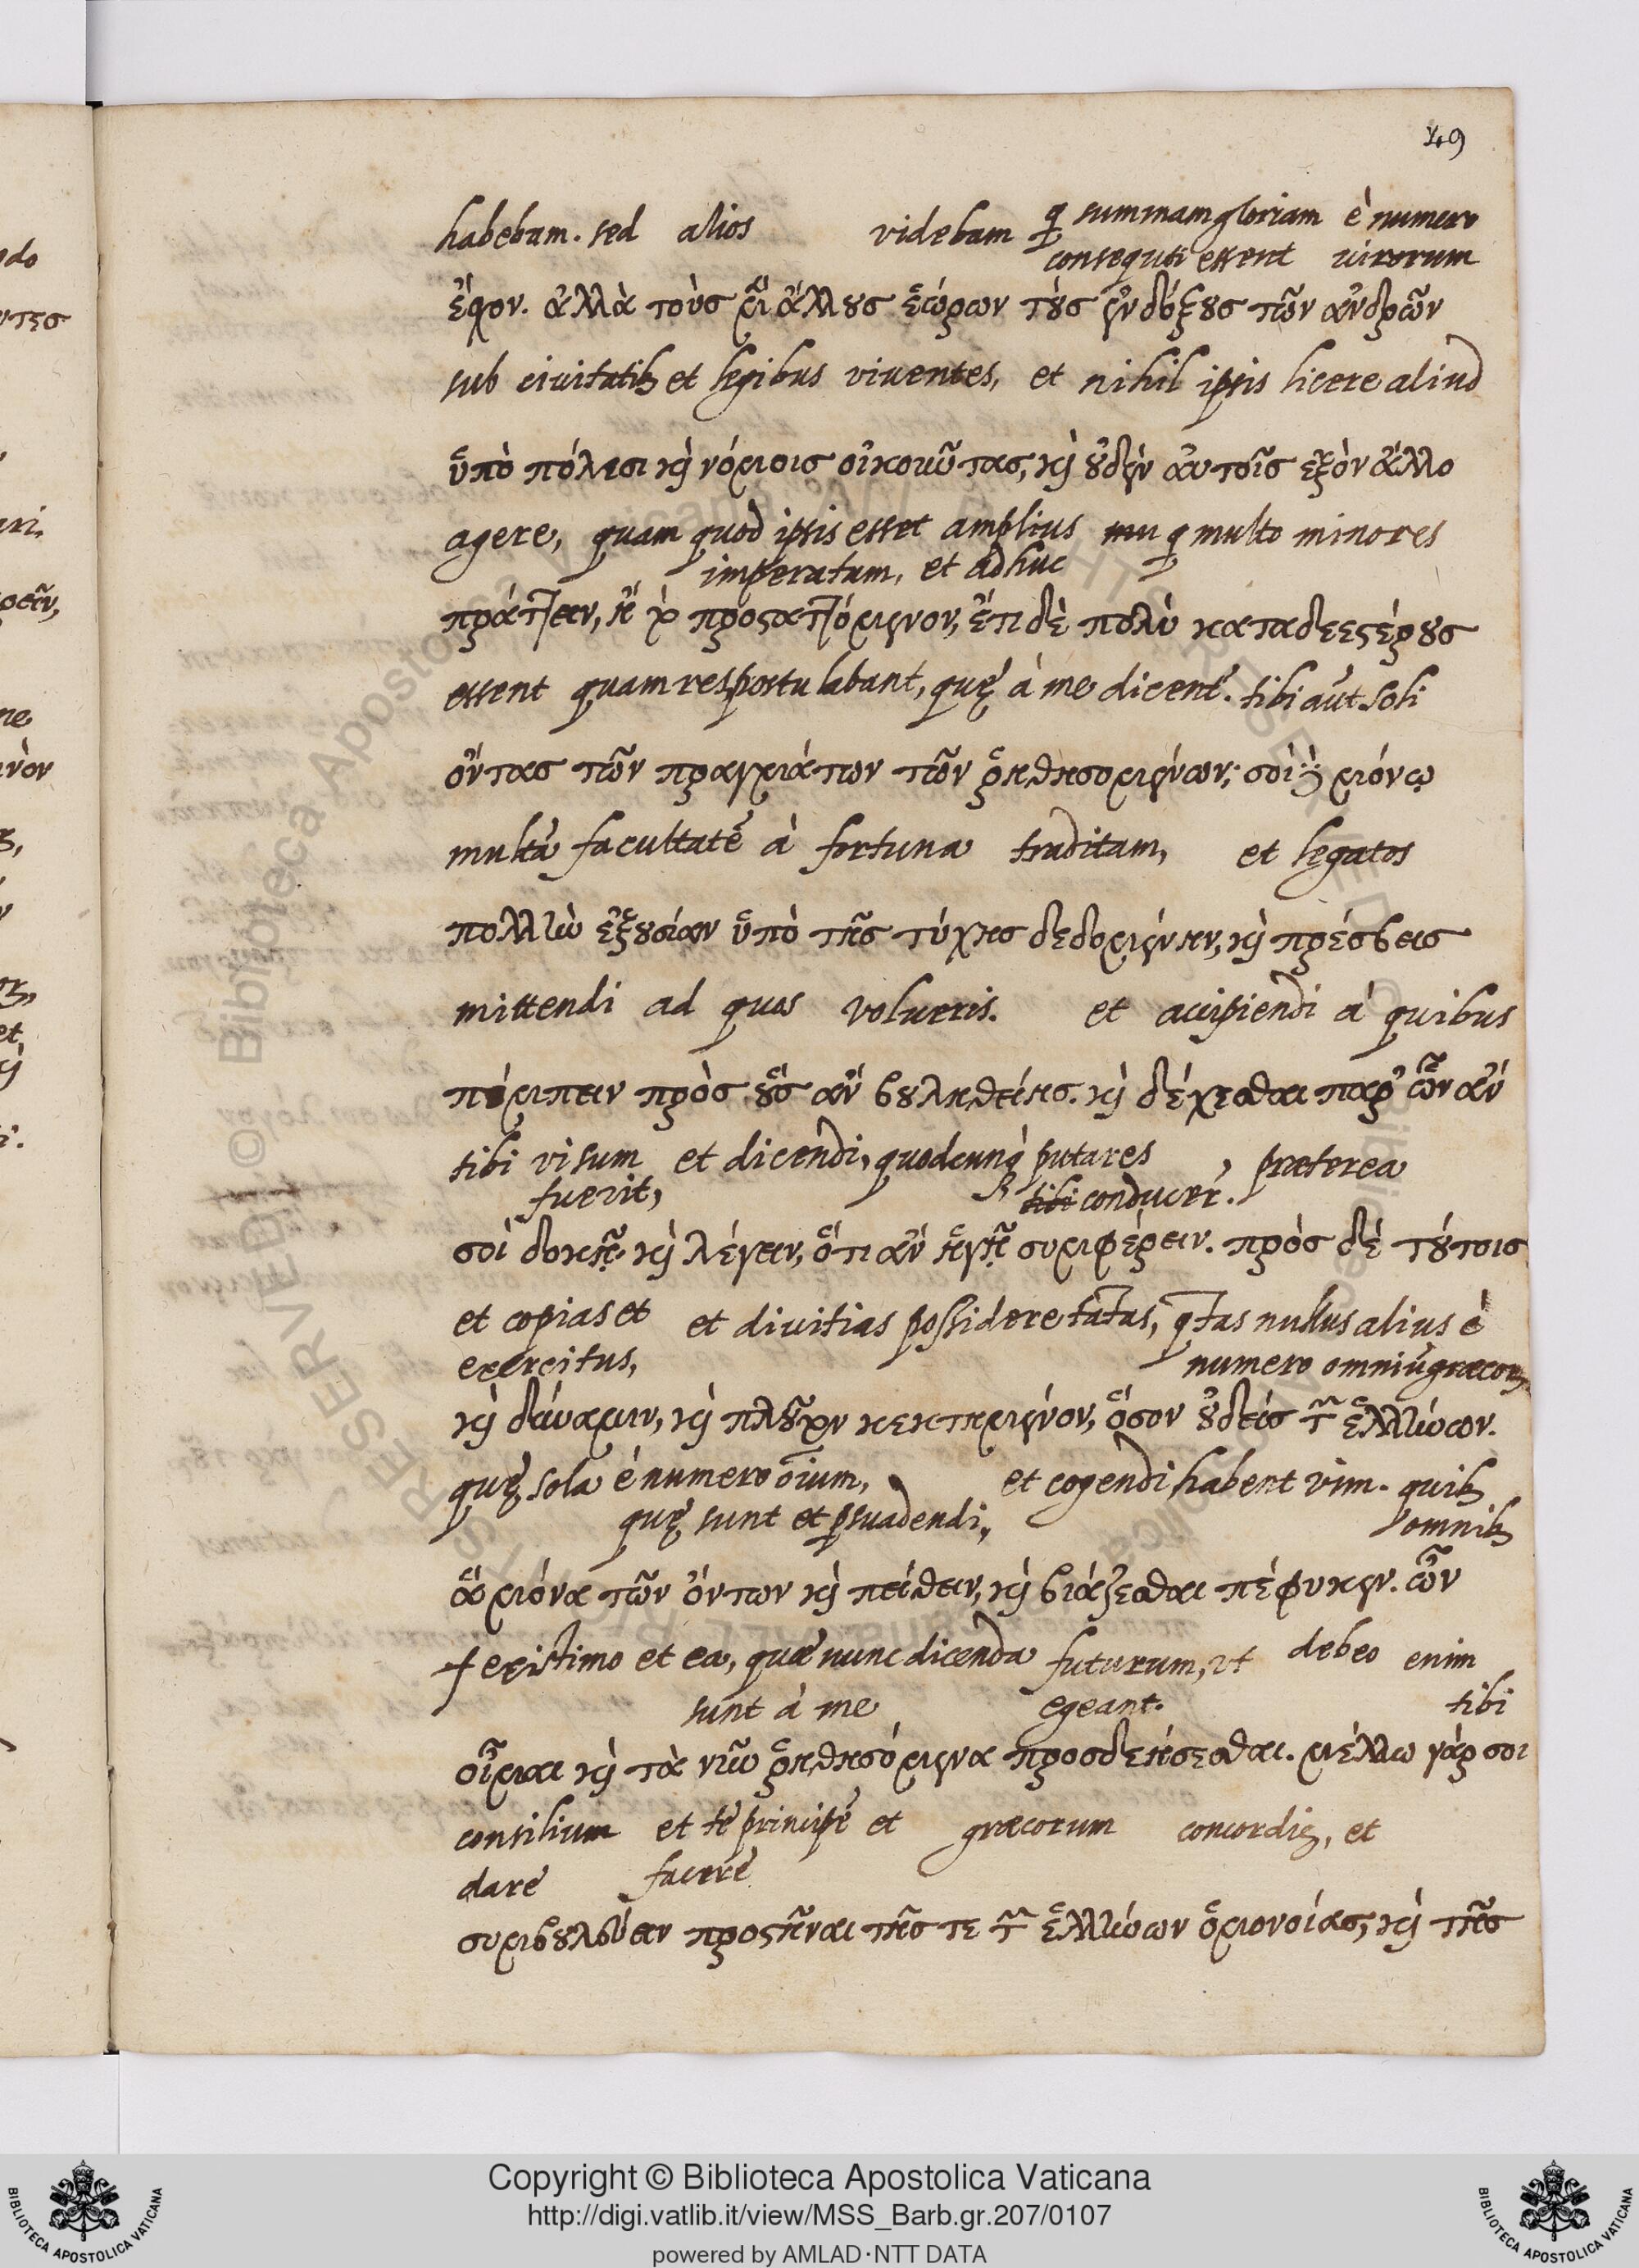 49
habebam. sed alios videbam q summam gloriam è numero
consequti essent uirorum
ἔχον. ἀλλὰ τοὺσ μὲν ἄλλȣσ ἑώρων τȣ̀σ ἐνδόξȣσ τῶν ἀνδρῶν
sub ciuitatib et legibus viuentes, et nihil ipsis licere aliud
ὑπὸ πόλεσι κὶ νόμοισ οἰκοῦντασ, κὶ ȣ̓δὲν αὐτοῖσ ἐξὸν ἄλλο
agere, quam quod ipsis esset amplius q multo minores
imperatum, et adhuc
πράττειν, ἢ τὸ προσταττόμενον, ἔτι δὲ πολὺ καταδεεστέρȣσ
essent quam res postulabant, quę à me dicent. tibi aut soli
ὄντασ τῶν πραγμάτων τῶν ῥηθησομένων, σοὶ δὲ μόνῳ
multã facultatẽ à fortuna traditam, et legatos
πολλὴν ἐξȣσίαν ὑπὸ τῆσ τύχησ δεδομένην, κὶ πρέσβεισ
mittendi ad quos volueris. et accipiendi à quibus
πέμπειν πρὸσ ȣ̔́σ ἂν βȣληθείησ. κὶ δέχεσθαι παρ᾽ ὧν ἄν
tibi visum et dicendi, quodcunq putares, præterea
fuerit, tibi conducer.
σοὶ δοκῇ. κὶ λέγειν, ὅτι ἂν ἡγῇ συμφέρειν. πρὸσ δὲ τȣ́τοισ
et copias et et diuitias possidere tãtas, qtas nullus alius è
exercitus, numero omniũ græcor
κὶ δύναμιν, κὶ πλȣ̃τον κεκτημένον, ὅσον ȣ̓δεὶσ τ῀ ἑλλήνων.
quę sola è numero oium, et cogendi habent vim. quib
quę sunt et psuadendi, omnib
ἃ μόνα τῶν ὄντων κὶ πείθειν, κὶ βιάζεσθαι πέφυκεν. ὧν
existimo et ea, quæ nunc dicenda futurum, ut debeo enim
sunt à me egeant. tibi
οἶμαι κὶ τὰ νῦν ῥηθησόμενα προσδεήσεσθαι. μέλλω γάρ σοι
consilium et tẽ principẽ et græcorum concordię, et
dare facere
συμβȣλεύειν προστῆναι τῆσ τε τ῀ ἑλλήνων ὁμονοίασ, κὶ τῆσ
Copyright © Biblioteca Apostolica Vaticana
http://digi.vatlib.it/view/MSS_Barb.gr.207/0107
powered by AMLAD·NTT DATA
BIBLIOTECA APOSTOLICA VATICANA
BIBLIOTECA APOSTOLICA VATICANA